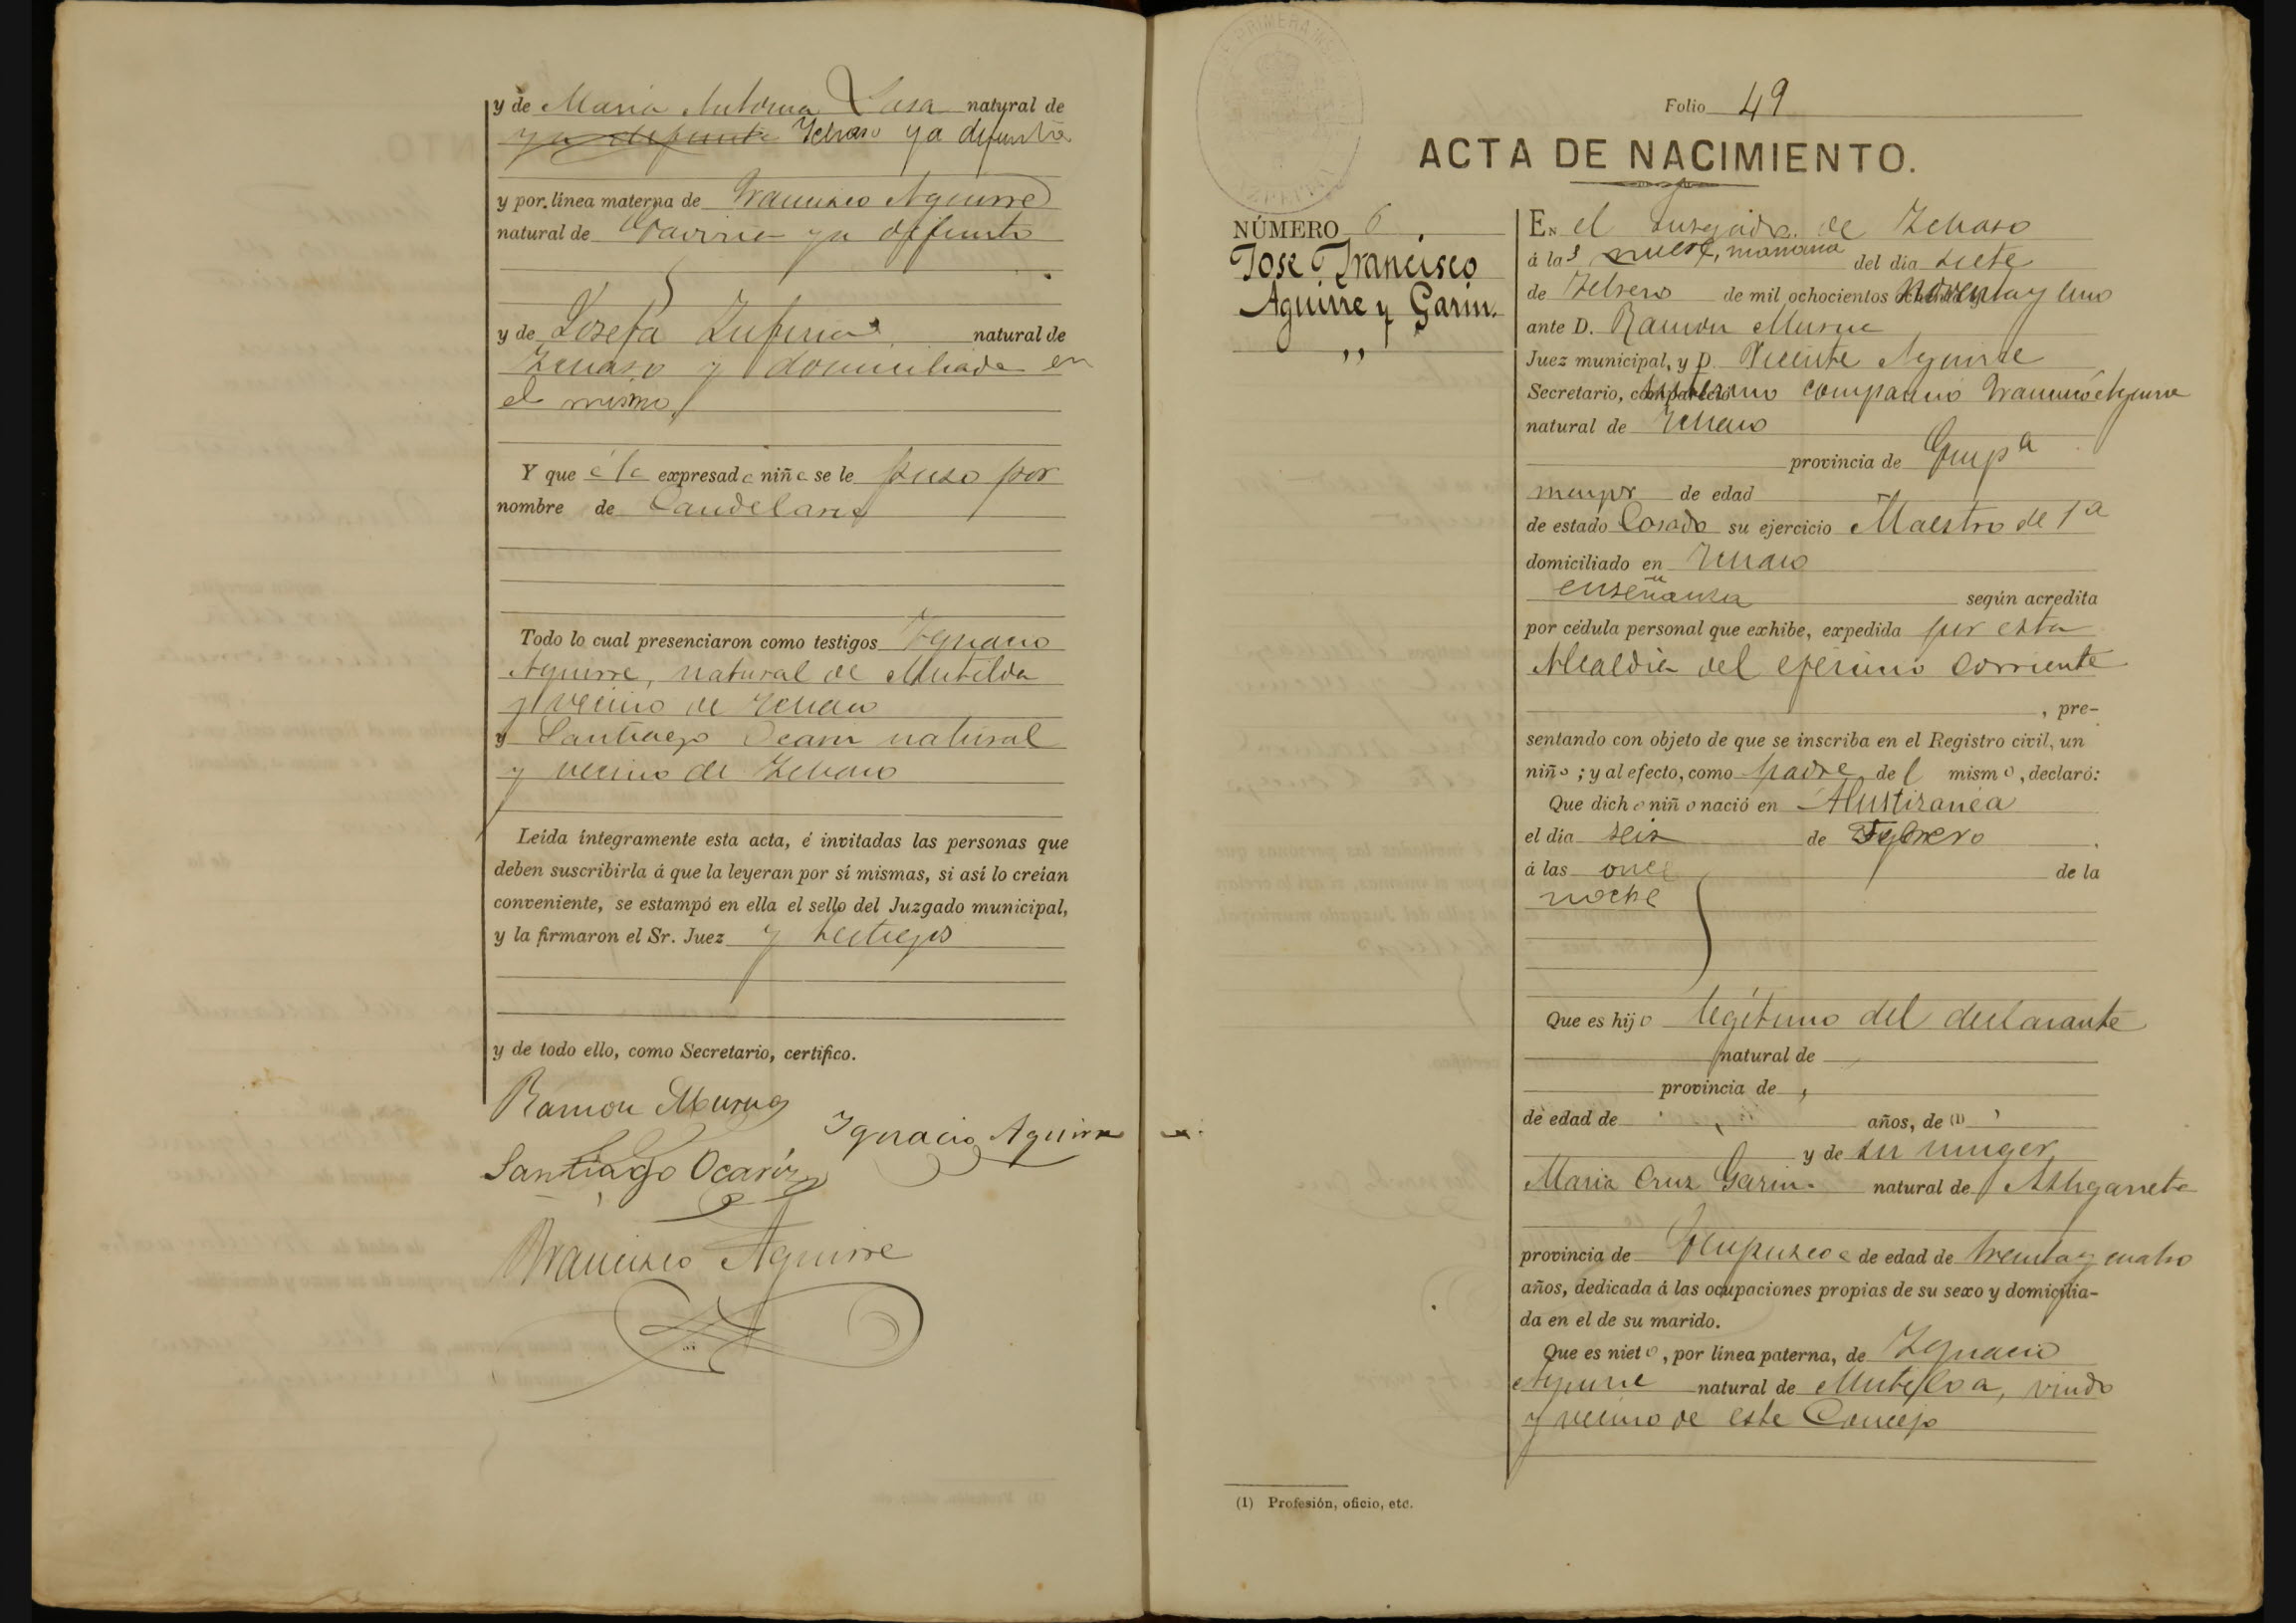 y de Maria Antonia Lasa natural de
ya defunta Zerraso ya defunta
y por línea materna de Francisco Aguirre
natural de Gaviria ya difunto
y de Josefa natural de
y domiciliada en
el mismo
Y que á la expresada niña se le puso por
nombre de Candelaria
Todo lo cual presenciaron como testigos Ygnacio
Aguirre, natural de Mutiloa
y vecino de
y Santiago Ocariz natural
y vecino de
Leída íntegramente esta acta, é invitadas las personas que
deben suscribirla á que la leyeran por sí mismas, si así lo creían
conveniente, se estampó en ella el sello del Juzgado municipal,
y la firmaron el Sr. Juez y testigos
y de todo ello, como Secretario, certifico.
Ramon Murua
Ygnacio Aguirre
Santiago Ocariz
Francisco Aguirre
Folio 49
ACTA DE NACIMIENTO.
NÚMERO 6
Jose Francisco
Aguirre y Garin.
En el Juzgado de
á las nueve, mañana del día siete
de Febrero de mil ochocientos noventa y uno
ante D. Ramon Murua
Juez municipal, y D. Vicente Aguirre
Secretario, compareció Francisco Aguirre
natural de
provincia de Guipª
mayor de edad
de estado Casado su ejercicio Maestro de 1ª
domiciliado en
enseñanza según acredita
por cédula personal que exhibe, expedida por esta
Alcaldia del corriente
, pre-
sentando con objeto de que se inscriba en el Registro civil, un
niño; y al efecto, como padre del mismo, declaró:
Que dicho niño nació en
el día seis de Febrero
á las once de la
noche
Que es hijo legítimo del declarante
natural de
provincia de
de edad de años, de (1)
y de su muger
Maria Cruz Garin natural de Astigarreta
provincia de Guipuzcoa de edad de treinta y cuatro
años, dedicada á las ocupaciones propias de su sexo y domicilia-
da en el de su marido.
Que es nieto, por línea paterna, de Ygnacio
Aguirre natural de Mutiloa, viudo
y vecino de este Concejo
(1) Profesión, oficio, etc.